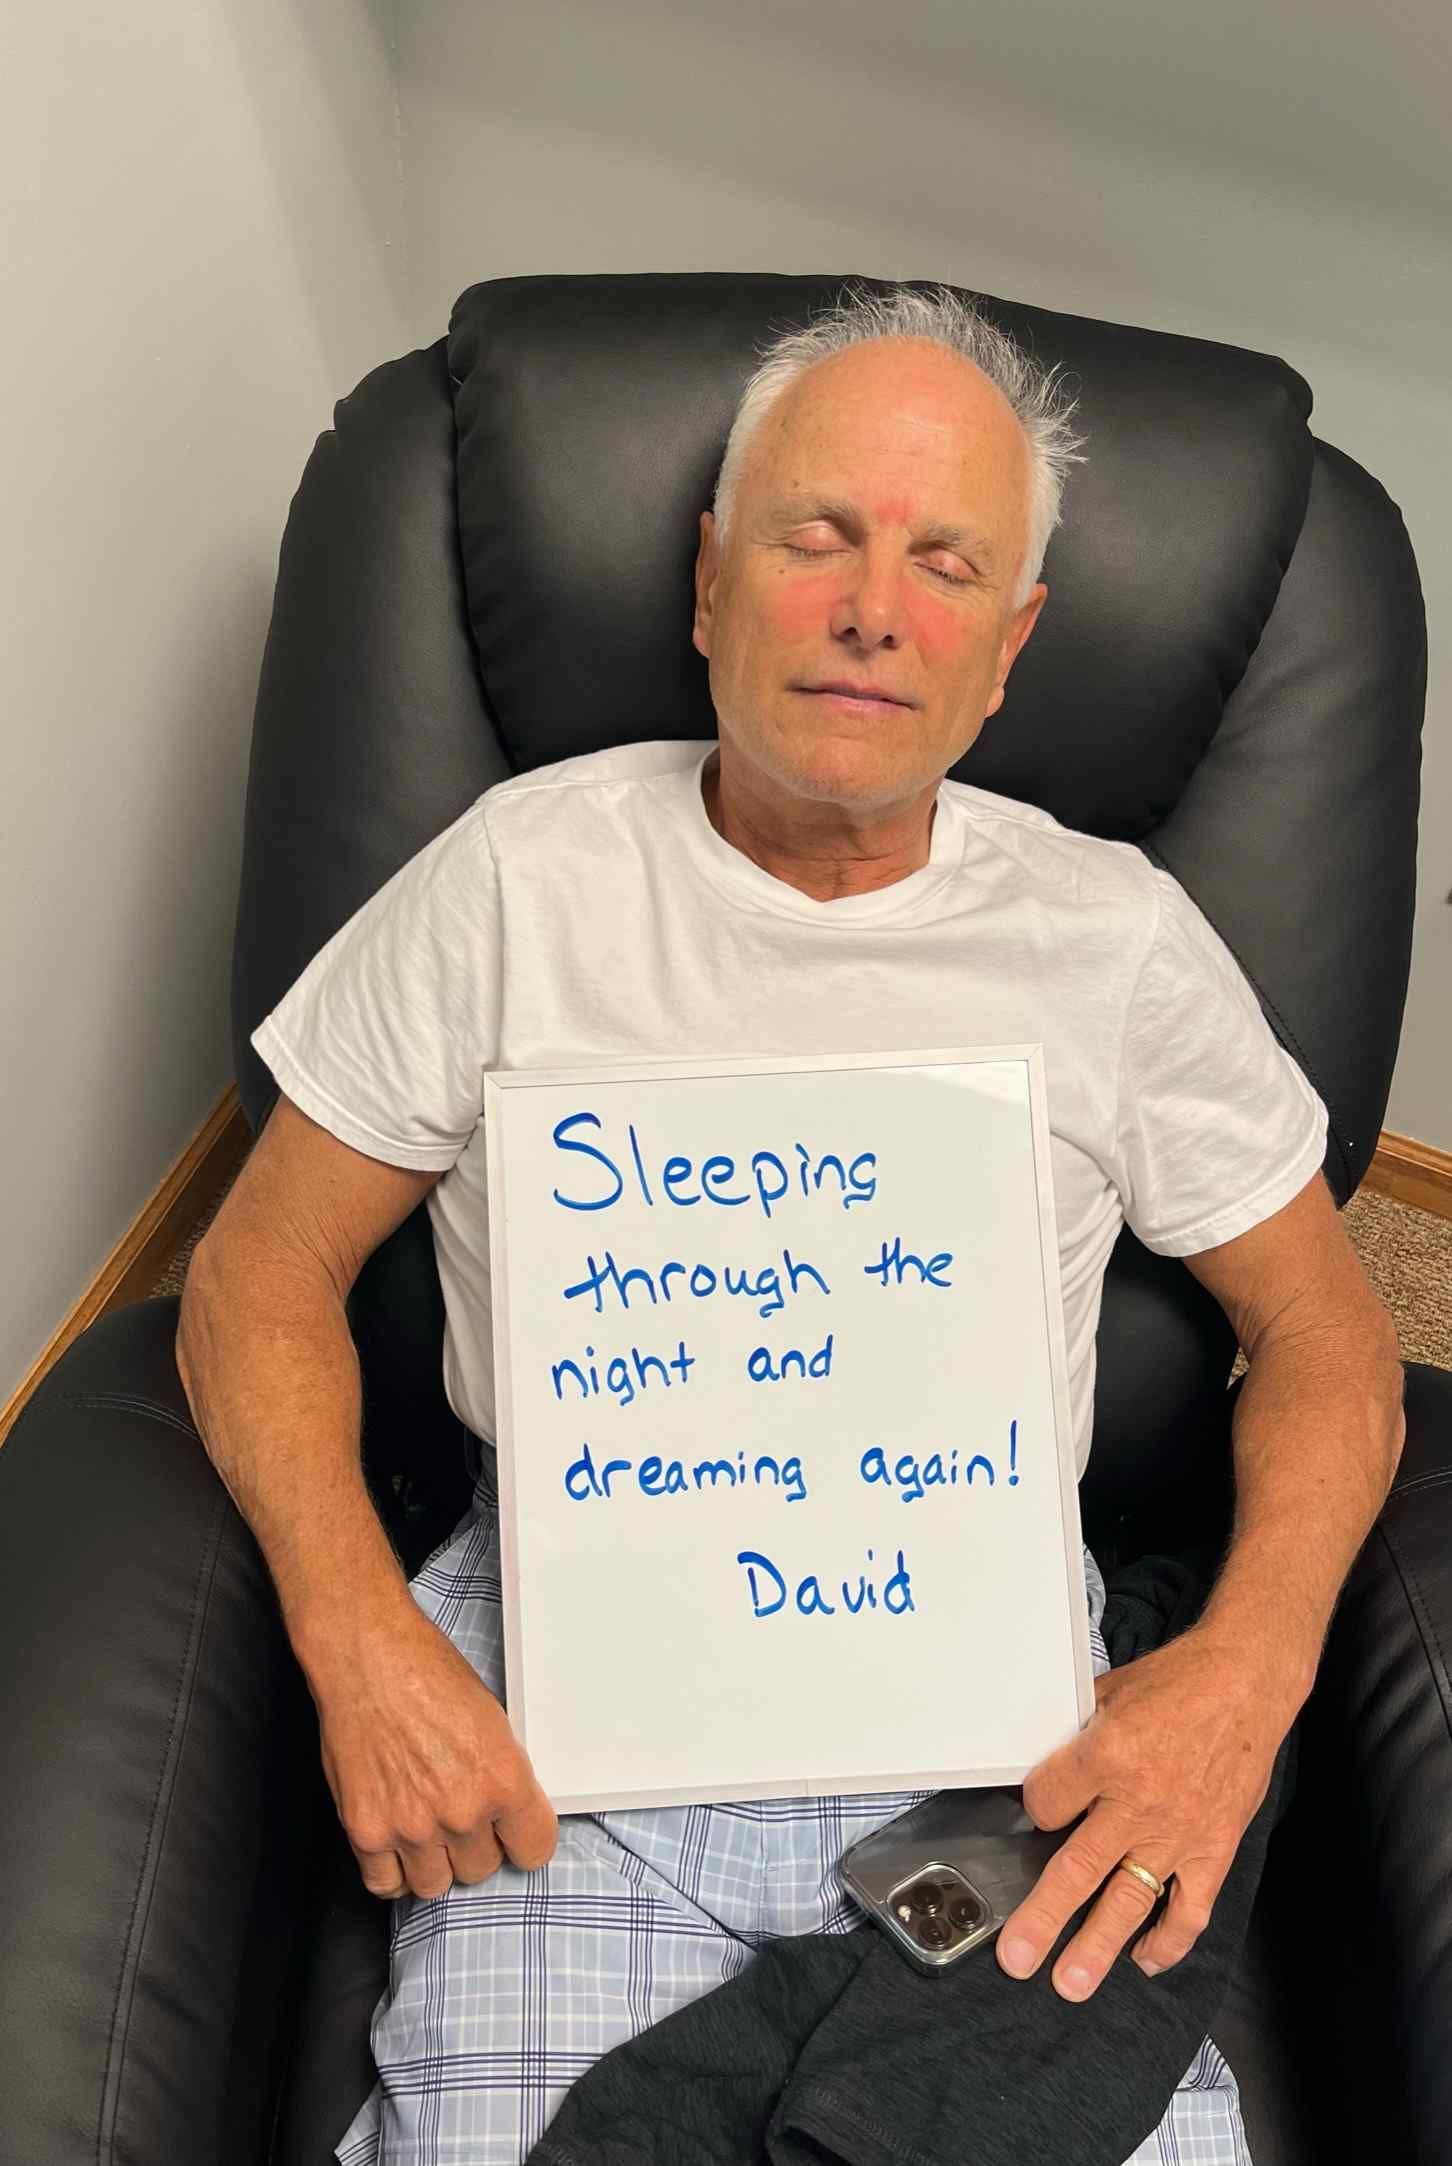 Sleeping
through the
night and
dreaming again!
David